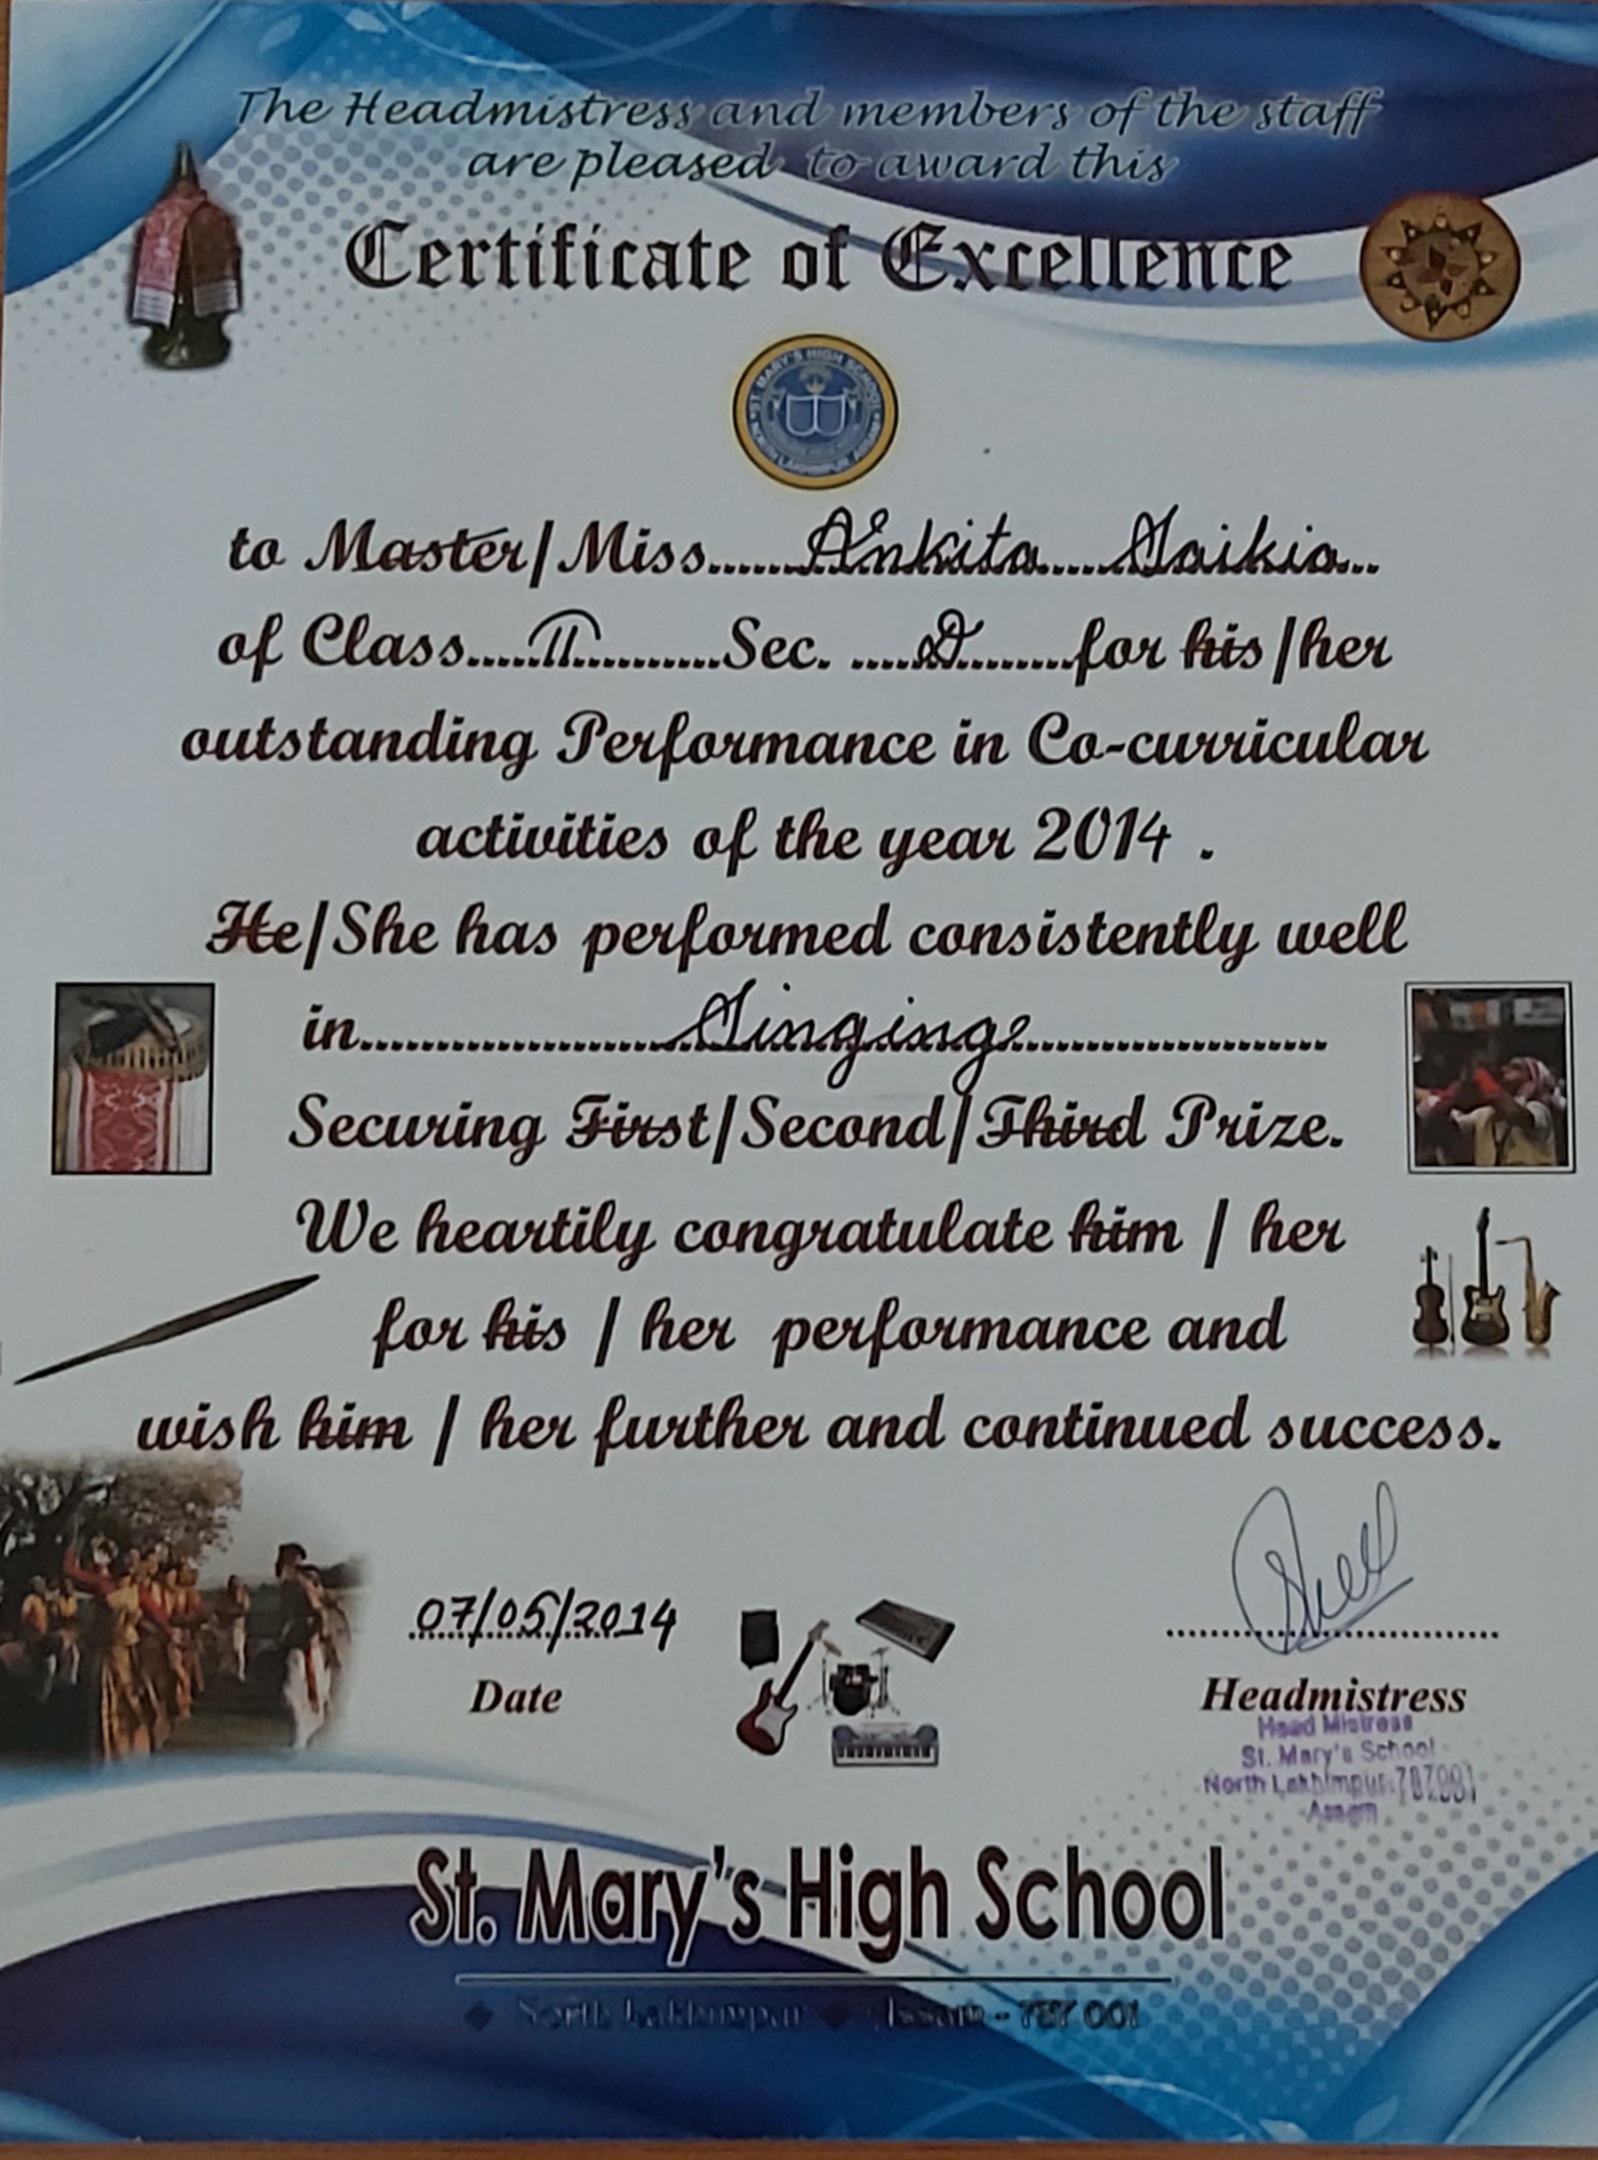 The Headmistress and members of the staff
are pleased to award this
Certificate of Excellence
ST. MARY'S HIGH SCHOOL
NORTH LAKHIMPUR, ASSAM
to Master/Miss......Ankita....Saikia...
of Class.....II..........Sec. .....D........for his/her
outstanding Performance in Co-curricular
activities of the year 2014 .
He/She has performed consistently well
in......................Singing......................
Securing First/Second/Third Prize.
We heartily congratulate him / her
for his / her performance and
wish him / her further and continued success.
07/05/2014
Date
Headmistress
Head Mistress
St. Mary's School
North Lakhimpur-787001
Assam
St. Mary's High School
North Lakhimpur Assam - 787 001